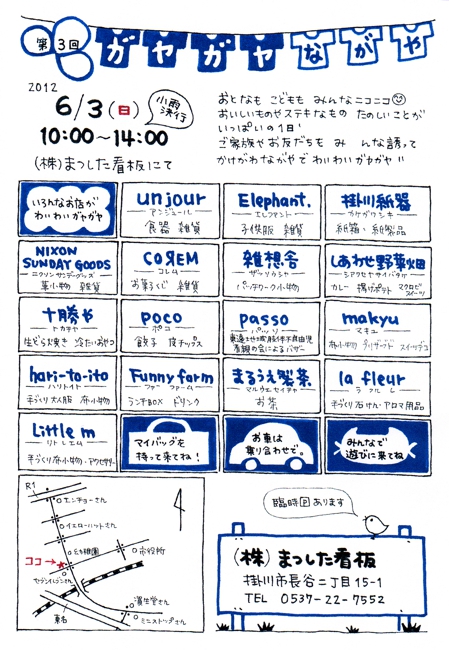 第3回
ガヤガヤながや
2012
6/3(日)
小雨決行
10:00〜14:00
(株)まつした看板にて
おとなも こどもも みんなニコニコ
おいしいものやステキなもの たのしいことが
いっぱいの1日!
ご家族やお友だちも みんな誘って
かけがわながやで わいわいガヤガヤ!!
いろんなお店が
わいわいガヤガヤ
unjour
アンジュール
食器 雑貨
Elephant.
エレファント
子供服 雑貨
掛川紙器
カケガワシキ
紙箱・紙製品
NIXON
SUNDAY GOODS
ニクソンサンデーグッズ
革小物 雑貨
COЯEM
コレム
お菓子くじ 雑貨
雑想舎
ザッソウシャ
パッチワーク小物
しあわせ野菜畑
シアワセヤサイバタケ
カレー 揚げポテト マクロビスイーツ
十勝や
トカチヤ
生どら焼き 冷たいおやつ
poco
ポコ
餃子 皮チップス
passo
パッソ
看板の会によるバザー
makyu
マキュ
布小物 プリザーブド スイーツデコ
hari-to-ito
ハリトイト
手づくり大人服 布小物
Funny farm
ファニーファーム
ランチBOX ドリンク
まるうえ製茶
マルウエセイチャ
お茶
la fleur
ラ フルール
手づくり石けん・アロマ用品
Little m
リトルエム
手づくり布小物・アクセサリー
マイバッグを
持って来てね!
お車は
乗り合わせで。
みんなで
遊びに来てね
R1
エンチョーさん
イエローハットさん
幼稚園
市役所
ココ→★
セブンイレブンさん
資生堂さん
東名
ミニストップさん
臨時Pあります
(株)まつした看板
掛川市長谷二丁目15-1
TEL 0537-22-7552